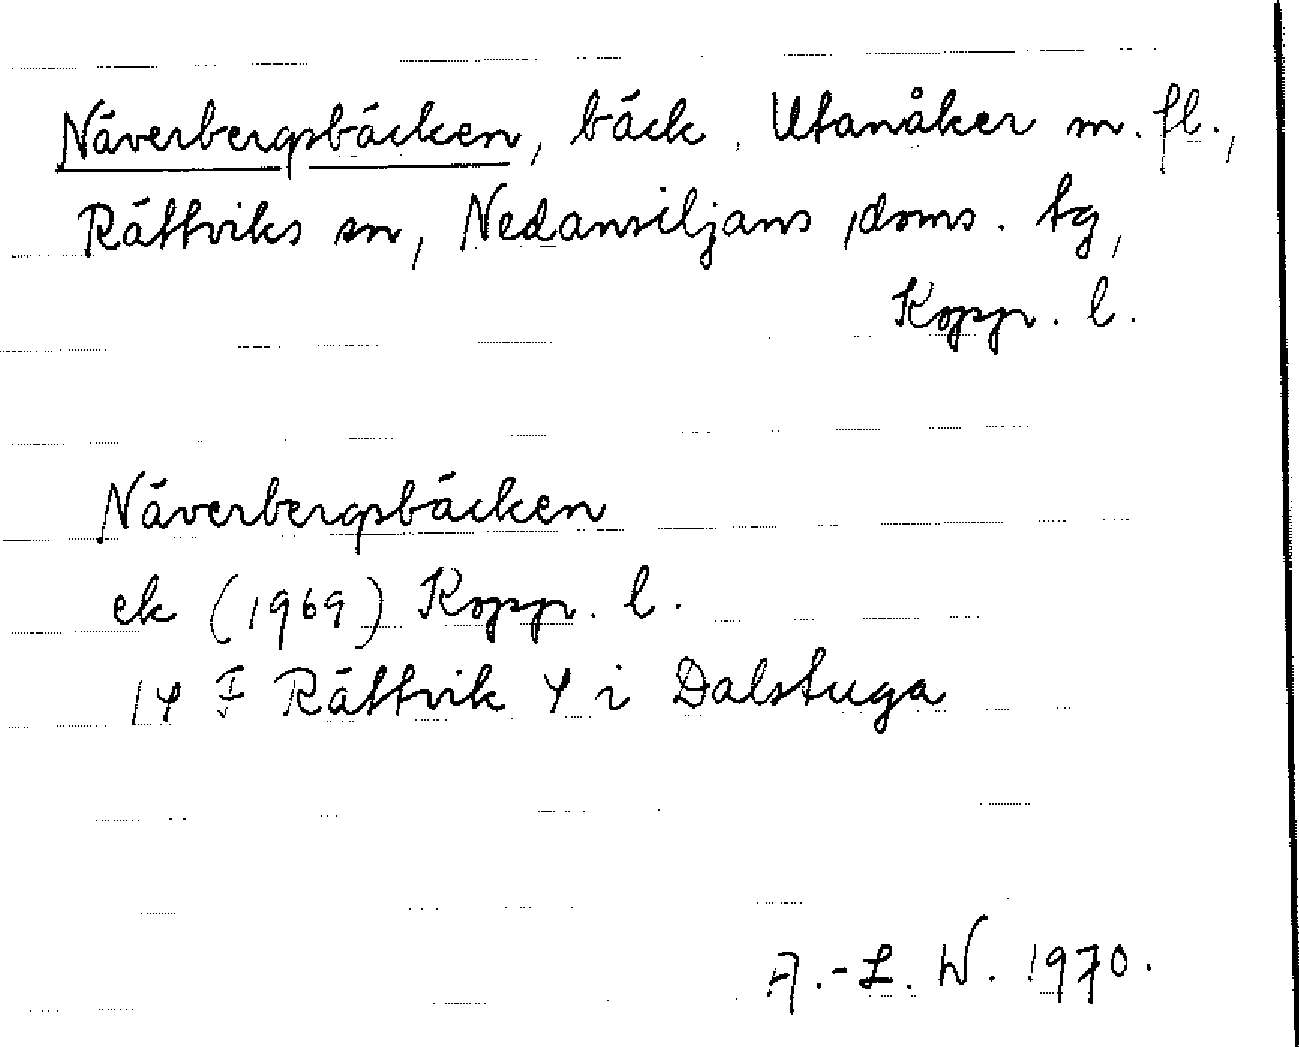 Näverbergsbäcken, bäck, Utanåker m. fl.,
Rättviks sn, Nedansiljans doms. tg,
Kopp. l.
Näverbergsbäcken
ek (1969) Kopp. l.
14 I Rättvik 4 i Dalstuga
A.-L. W. 1970.